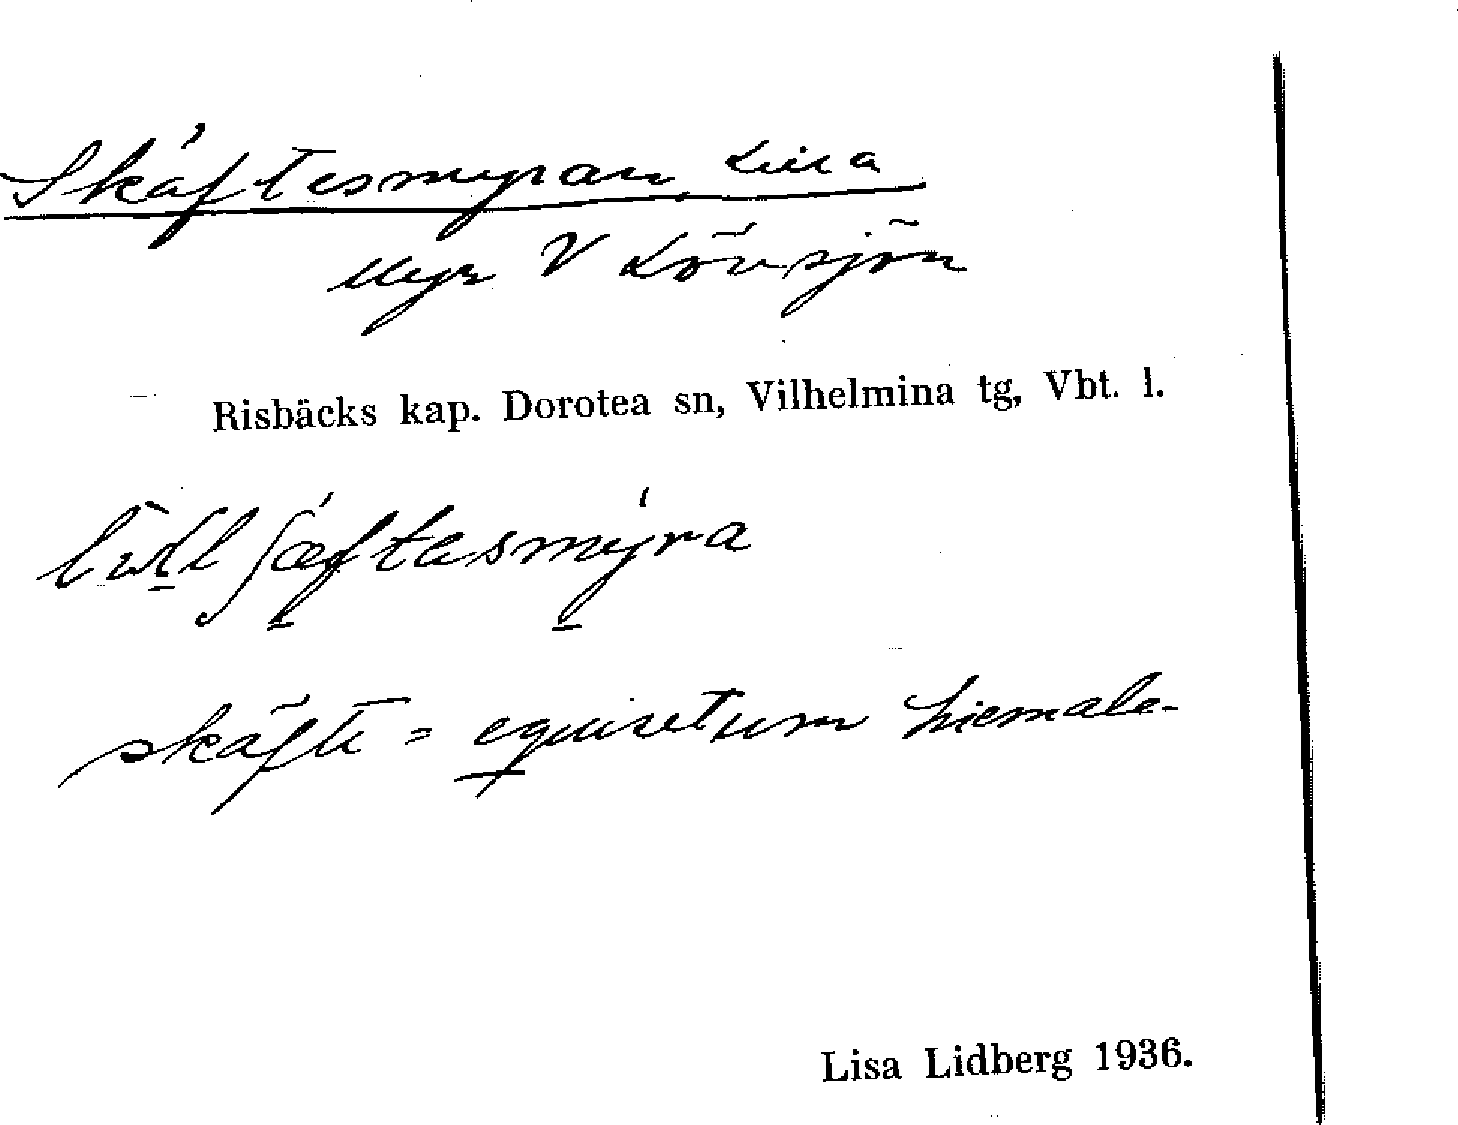 Skäftesmyran, Lilla
Myr V Lövsjön
Risbäcks kap. Dorotea sn, Vilhelmina tg, Vbt. l.
skäfte = equisetum hiemale.
Lisa Lidberg 1936.